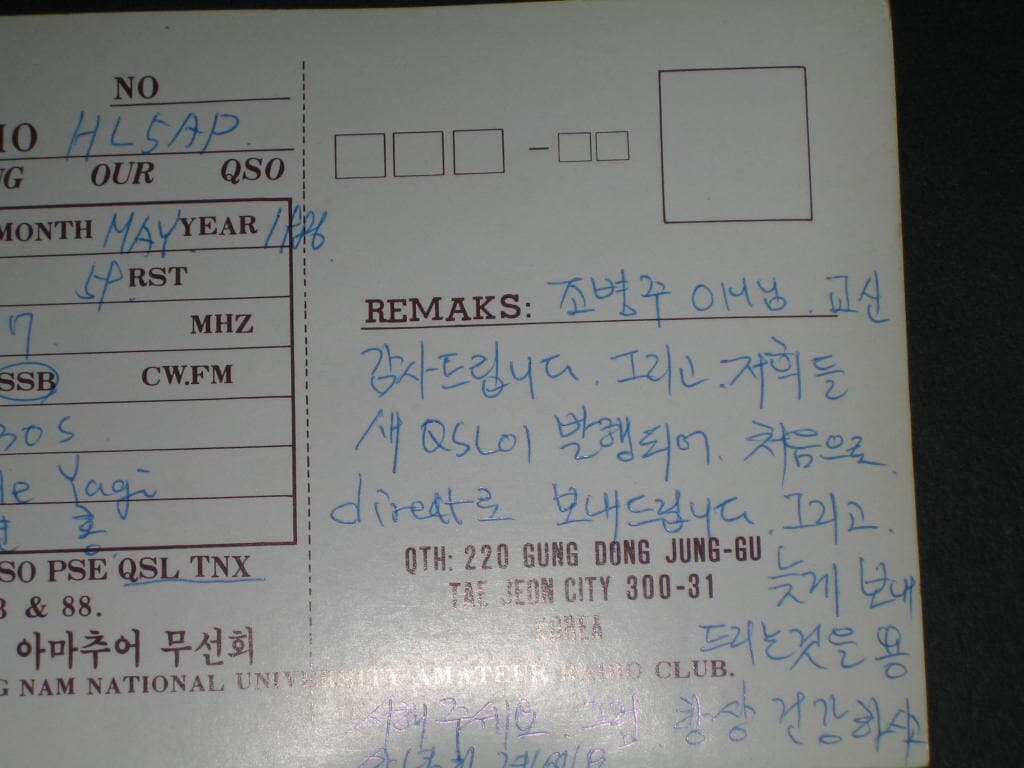 NO
IO HL5AP
NG OUR QSO
MONTH MAY YEAR 1986
59 RST
7 MHZ
SSB CW.FM
30S
le Yagi
호
SO PSE QSL TNX
3 & 88.
아마추어 무선회
G NAM NATIONAL UNIVERSITY AMATEUR RADIO CLUB.
REMAKS: 조병주 OM님. 교신
감사드립니다. 그리고. 저희들
새 QSL이 발행되어. 처음으로.
direct로 보내드립니다. 그리고.
QTH: 220 GUNG DONG JUNG-GU
TAE JEON CITY 300-31
KOREA
늦게 보내
드리는것을 용
서해 주세요. 그럼 항상 건강하시고
계세요